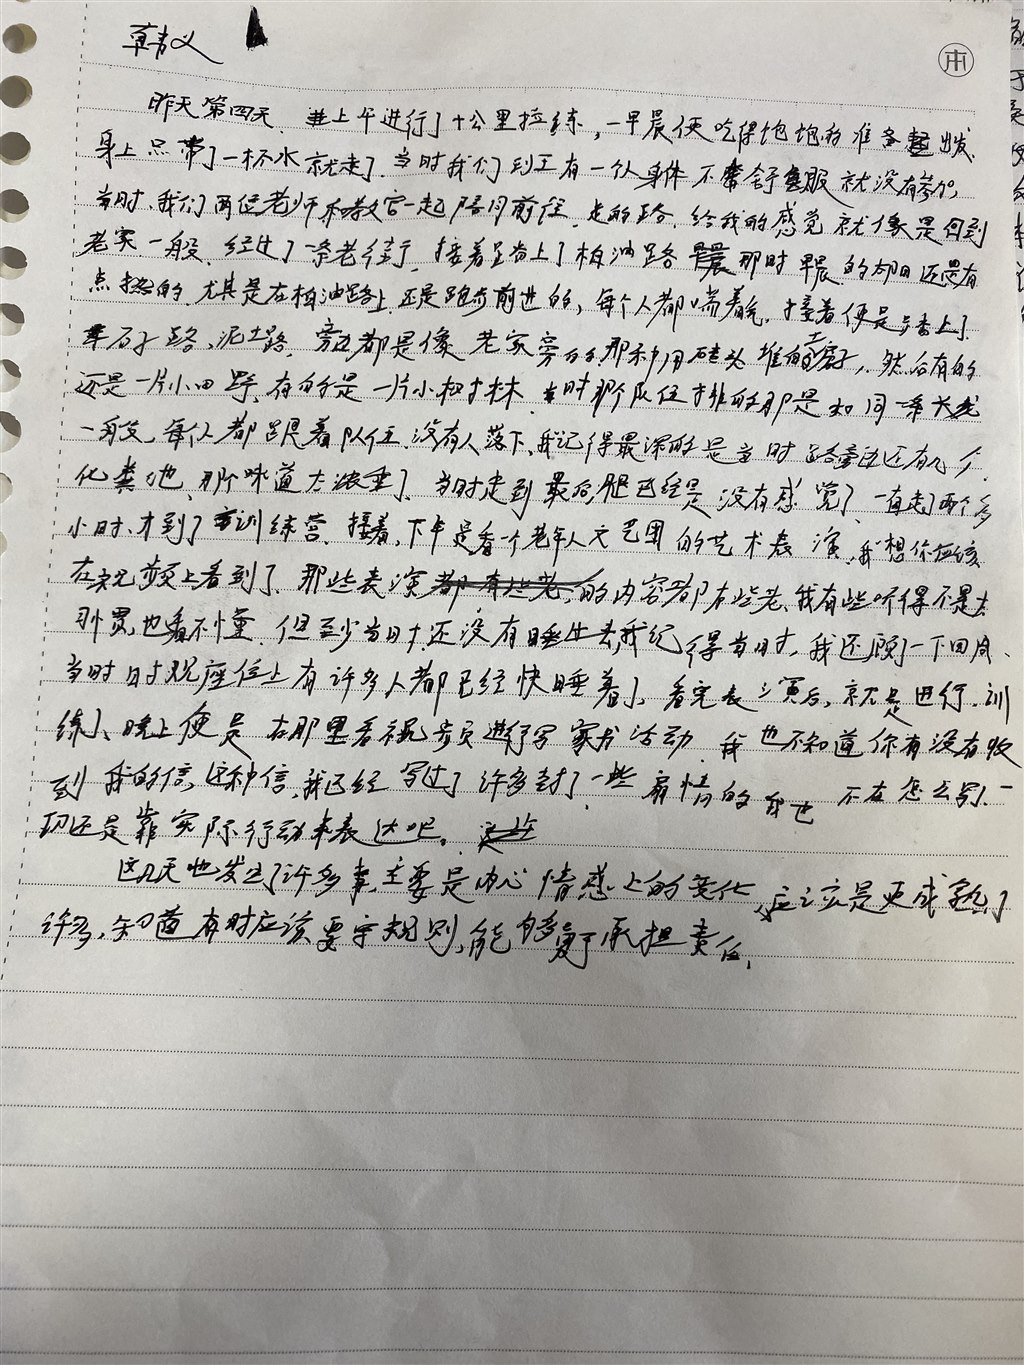 韩义
昨天第四天、上午进行了十公里拉练,一早晨便吃得饱饱的准备出发
身上只带了一杯水就走了.当时我们到工有一个身体不舒服就没有参加,
当时、我们两位老师和教官一起陪同前往.走的路.给我的感觉就像是回到
老家一般.经过了一条老街,接着踏上了柏油路那时早晨的却还是有
点热的.尤其是在柏油路上还是跑步前进的,每个人都喘着气.接着便是踏上了
石子路、泥土路.旁边都是像老家旁的那种用砖头堆的房子,然后有的
还是一片小田野,有的是一片小树林.当时那个队伍排的那是如同一条长龙
一般,每人都跟着队伍没有人落下、我记得最深的是当时路旁边还有几个
化粪池,那个味道太浓重了、当时走到最后,腿已经是没有感觉了一直走了两个多
小时、才到了训练营.接着,下午是看一个老年人文艺团的艺术表演,我想你应该
在视频上看到了.那些表演的内容都有些老、我有些听得不是太
习惯,也看不懂.但至少当时还没有睡过去,我记得当时,我还顾了一下四周、
当时时观座位上有许多人都已经快睡着了、看完表演后,就是进行训
练了、晚上便是在那里看视频进行写家书活动.我也不知道你有没有收
到我的信,这种信,我已经写过了许多封了一些煽情的我也不在怎么写、一
切还是靠实际行动来表达吧。
这几天也发生了许多事,主要是内心情感上的变化,应该是更成熟了
许多,知道有时应该要守规则,能够勇于承担责任,